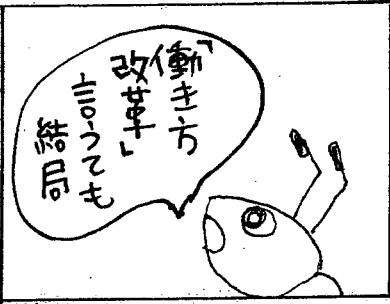 「働き方
改革」
言っても
結局